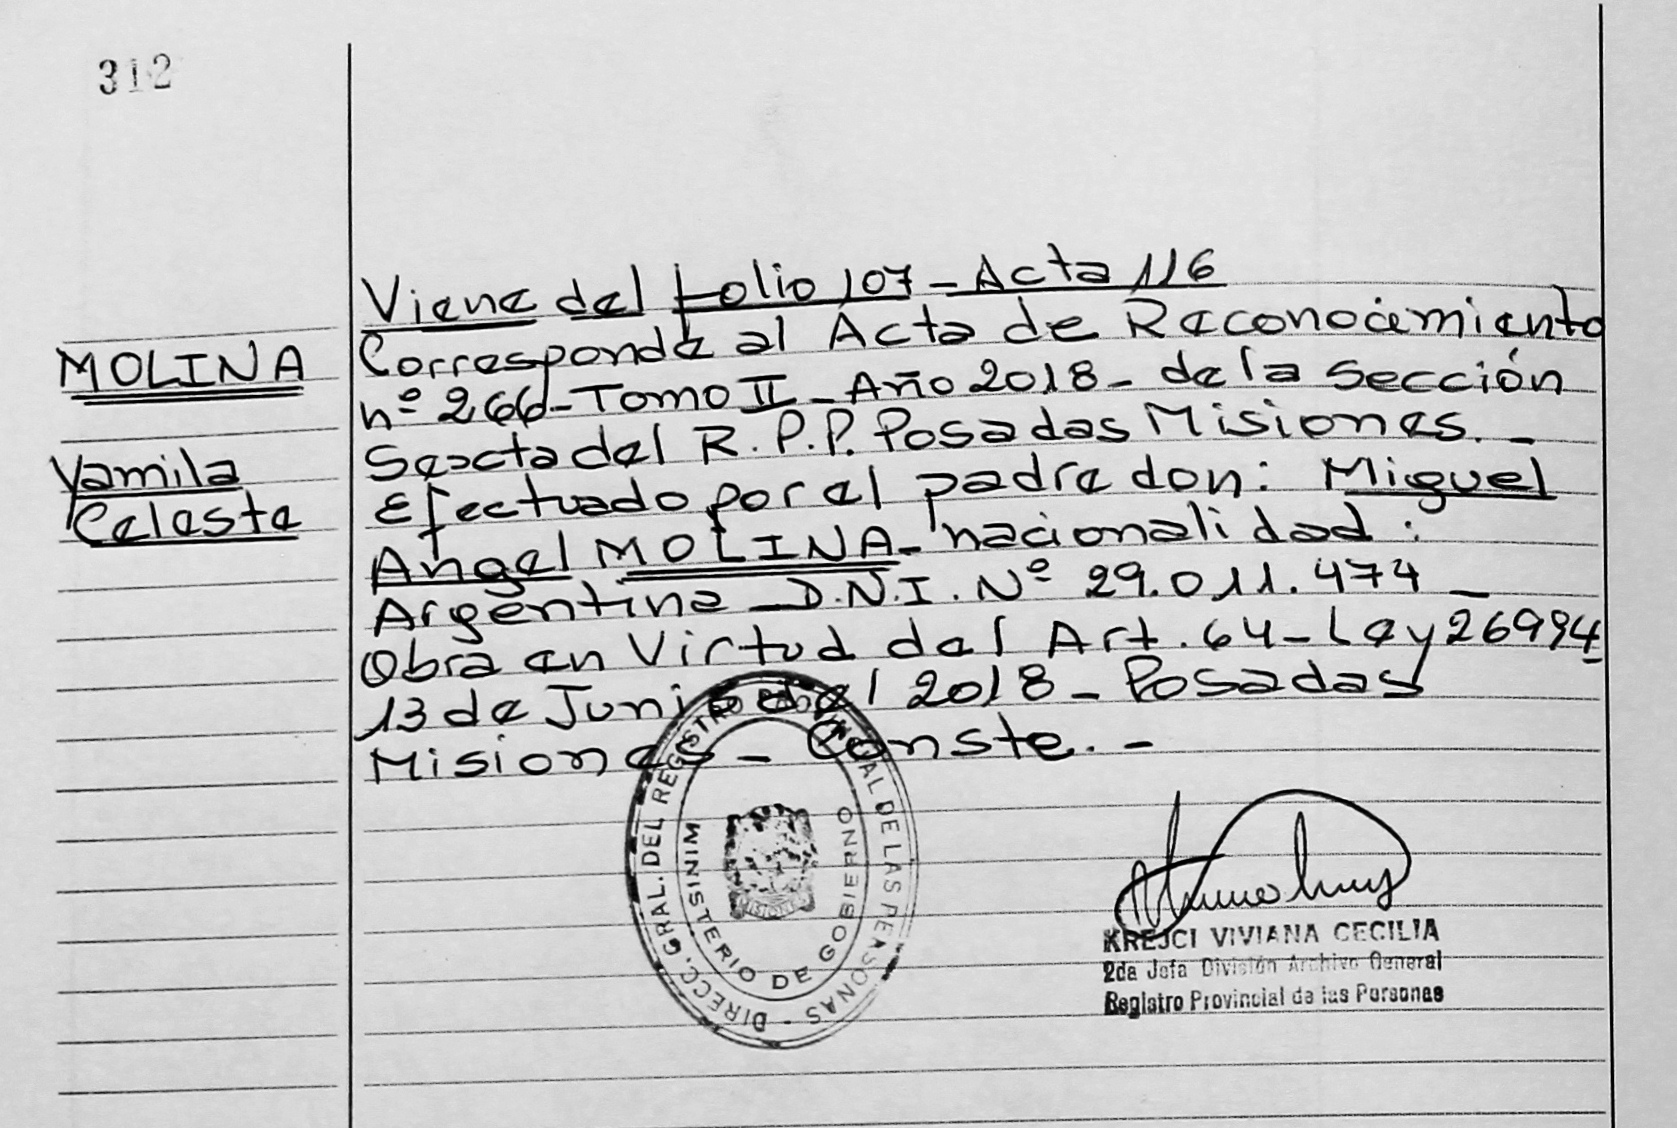 312
MOLINA
Yamila
Celeste
Viene del folio 107 - Acta 116
Corresponde al Acta de Reconocimiento
nº 266 - Tomo II - Año 2018 - de la Sección
Sexta del R.P.P. Posadas Misiones. -
Efectuado por el padre don: Miguel
Angel MOLINA - nacionalidad:
Argentina - D.N.I. Nº 29.011.474 -
Obra en Virtud del Art. 64 - Ley 26994
13 de Junio del 2018 - Posadas
Misiones - Conste. -
DIRECC. GRAL. DEL REGISTRO PROVINCIAL DE LAS PERSONAS -
MINISTERIO DE GOBIERNO
MISIONES
KREJCI VIVIANA CECILIA
2da Jefa División Archivo General
Registro Provincial de las Personas